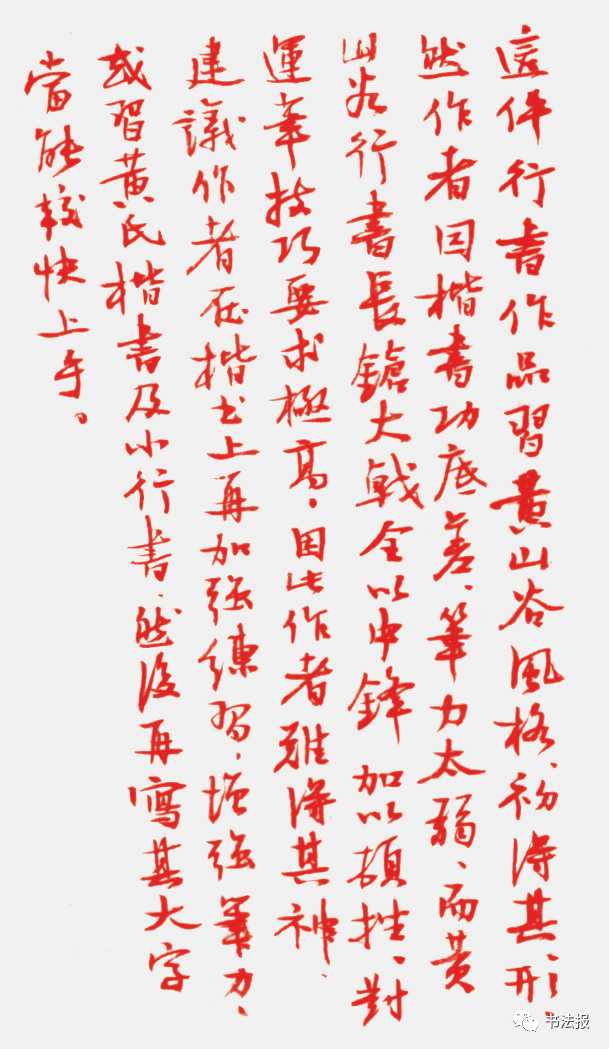 這件行書作品習黄山谷風格、初得其形。
然作者因楷書功底差、筆力太弱、而黄
山谷行書長鎗大戟全以中鋒加以頓挫、對
運筆技巧要求極高。因此作者難得其神、
建議作者在楷书上再加强練習、增强筆力、
或習黄氏楷書及小行書、然後再寫其大字
當能較快上手。
书法报